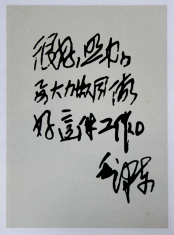 很好，照办。
要大力协同做
好這件工作。
毛泽东